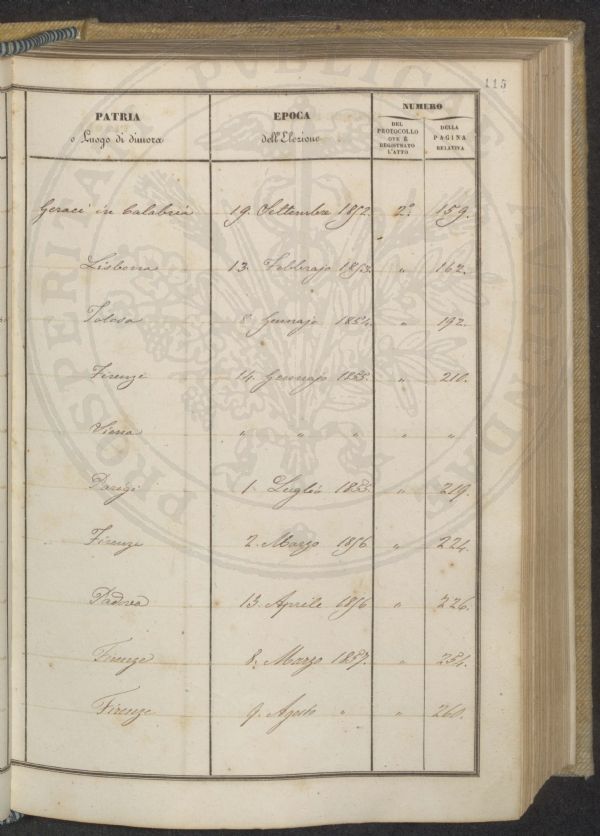 115
PATRIA
o Luogo di dimora
EPOCA
dell'Elezione
NUMERO
DEL
PROTOCOLLO
OVE È
REGISTRATO
L'ATTO
DELLA
PAGINA
RELATIVA
Geraci in Calabria 19. Settembre 1852. 2º. 159.
Lisbona 13. Febbrajo 1853. " 162.
Tolosa 8. Gennajo 1854. " 192.
Firenze 14. Gennajo 1855. " 210.
Siena " " " " "
Parigi 1. Luglio 1855. " 219.
Firenze 2. Marzo 1856 " 224.
Padova 13. Aprile 1856 " 226.
Firenze 8. Marzo 1857. " 254.
Firenze 9. Agosto " " 260.
PROSPERITATI PUBLICAE AUGENDAE